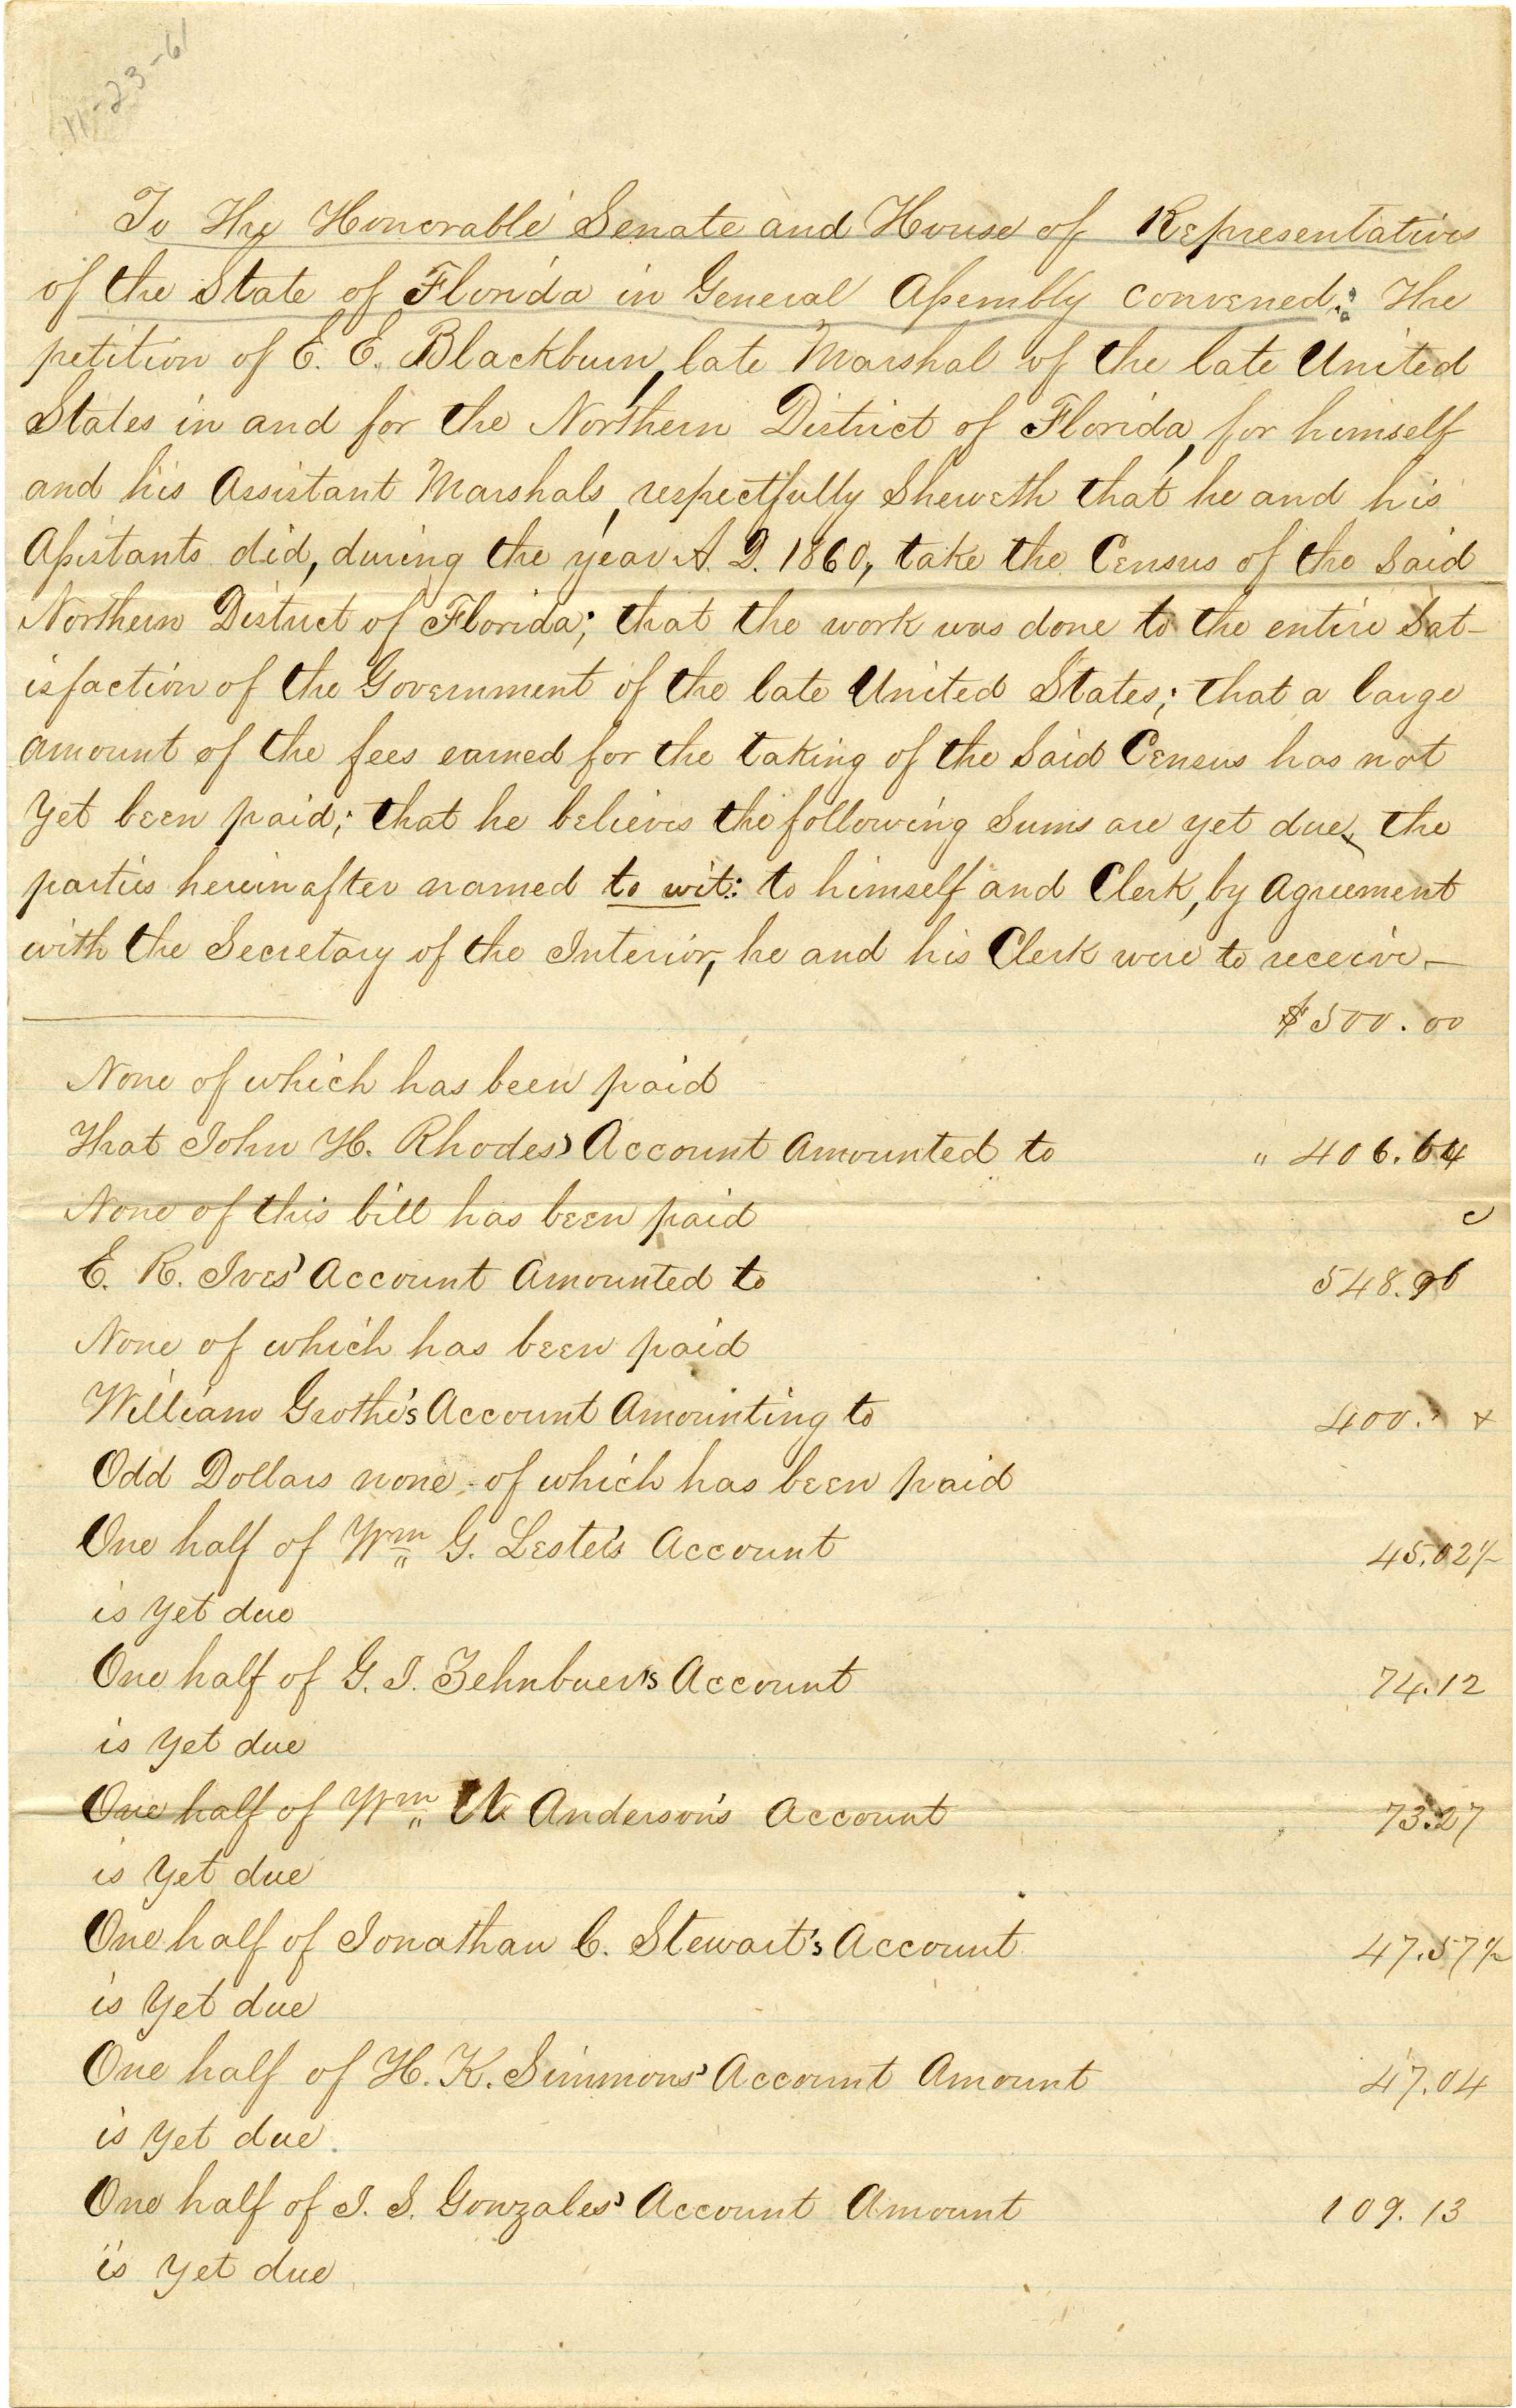 11-23-61
To The Honorable Senate and House of Representatives
of the State of Florida in General Assembly convened: The
petition of E. E. Blackburn, late Marshal of the late United
States in and for the Northern District of Florida, for himself
and his Assistant Marshals, respectfully Sheweth that he and his
Assistants did, during the year A. D. 1860, take the Census of the Said
Northern District of Florida; that the work was done to the entire Sat-
isfaction of the Government of the late United States; that a large
amount of the fees earned for the taking of the Said Census has not
yet been paid; that he believes the following Sums are yet due, the
parties hereinafter named to wit: to himself and Clerk, by Agreement
with the Secretary of the Interior, he and his Clerk were to receive—
$500.00
None of which has been paid
That John H. Rhodes' Account Amounted to " 406.64
None of this bill has been paid c
E. R. Ives' Account Amounted to 548.96
None of which has been paid
William Grothe's Account Amounting to 400. x
Odd Dollars none of which has been paid
One half of Wm G. Lester's Account 45.02½
is yet due
One half of G. I. Zehnbuer's Account 74.12
is yet due
One half of Wm W Anderson's Account 73.27
is yet due
One half of Jonathan C. Stewart's Account 47.57½
is yet due
One half of H. K. Simmons' Account Amount 47.04
is yet due.
One half of J. S. Gonzales' Account Amount 109.13
is yet due